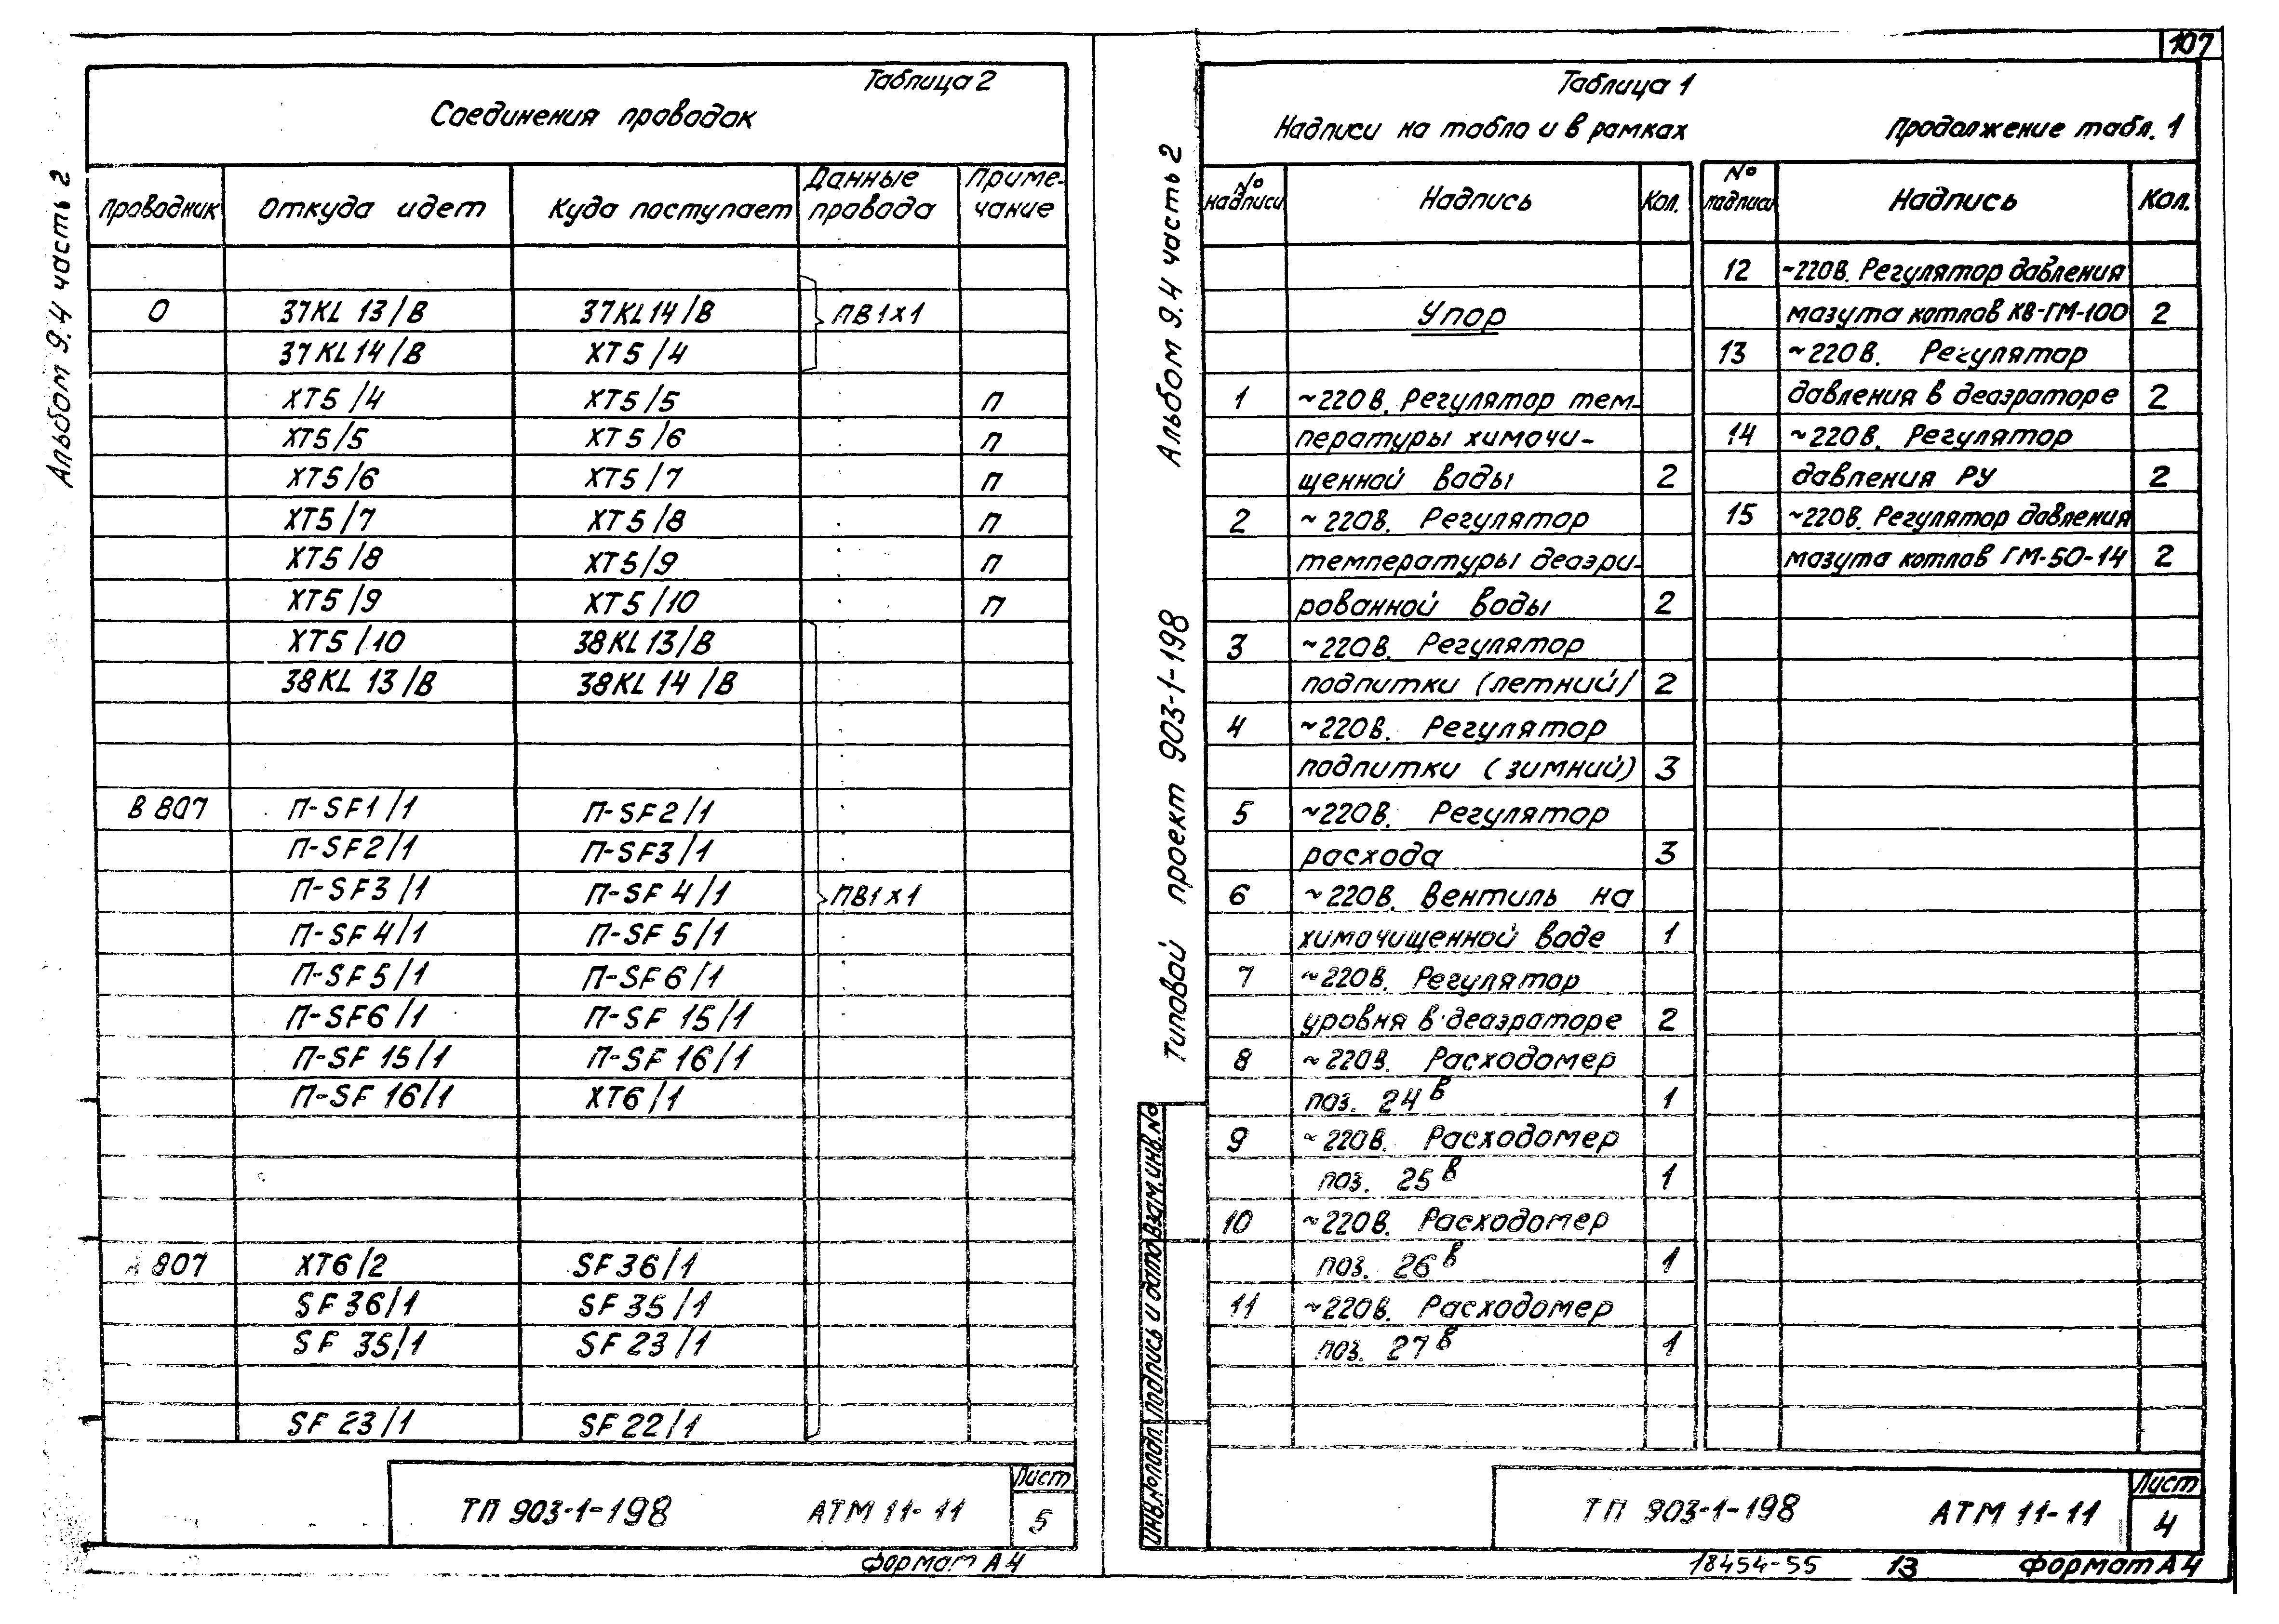 107
Альбом 9.4 часть 2
Таблица 2
Соединения проводок
Проводник Откуда идет Куда поступает Данные провода Приме-чание
0 37KL 13/В 37KL14/В ПВ1х1
37KL14/В ХТ5/4
ХТ5/4 ХТ5/5 П
ХТ5/5 ХТ5/6 П
ХТ5/6 ХТ5/7 П
ХТ5/7 ХТ5/8 П
ХТ5/8 ХТ5/9 П
ХТ5/9 ХТ5/10 П
ХТ5/10 38KL13/В
38KL 13/В 38KL 14/В
В 807 П-SF1/1 П-SF2/1
П-SF2/1 П-SF3/1
П-SF3/1 П-SF 4/1 ПВ1х1
П-SF 4/1 П-SF 5/1
П-SF 5/1 П-SF6/1
П-SF6/1 П-SF 15/1
П-SF 15/1 П-SF 16/1
П-SF 16/1 ХТ6/1
А 807 ХТ6/2 SF36/1
SF 36/1 SF 35/1
SF 35/1 SF 23/1
SF 23/1 SF 22/1
ТП 903-1-198 АТМ 11-11
Лист
5
Формат А4
Альбом 9.4 часть 2
Типовой проект 903-1-198
Взам.инв.№
Подпись и дата
Инв.№подл.
Таблица 1
Надписи на табло и в рамках Продолжение табл. 1
№ надписи Надпись Кол.
Упор
1 ~220В. Регулятор тем-
пературы химочи-
щенной воды 2
2 ~220В. Регулятор
температуры деаэри-
рованной воды 2
3 ~220В. Регулятор
подпитки (летний) 2
4 ~220В. Регулятор
подпитки (зимний) 3
5 ~220В. Регулятор
расхода 3
6 ~220В. Вентиль на
химочищенной воде 1
7 ~220В. Регулятор
уровня в деаэраторе 2
8 ~220В. Расходомер
поз. 24в 1
9 ~220В. Расходомер
поз. 25в 1
10 ~220В. Расходомер
поз. 26в 1
11 ~220В. Расходомер
поз. 27в 1
№ надписи Надпись Кол.
12 ~220В. Регулятор давления
мазута котлов КВ-ГМ-100 2
13 ~220В. Регулятор
давления в деаэраторе 2
14 ~220В. Регулятор
давления РУ 2
15 ~220В. Регулятор давления
мазута котлов ГМ-50-14 2
ТП 903-1-198 АТМ 11-11
Лист
4
18454-55 13 Формат А4